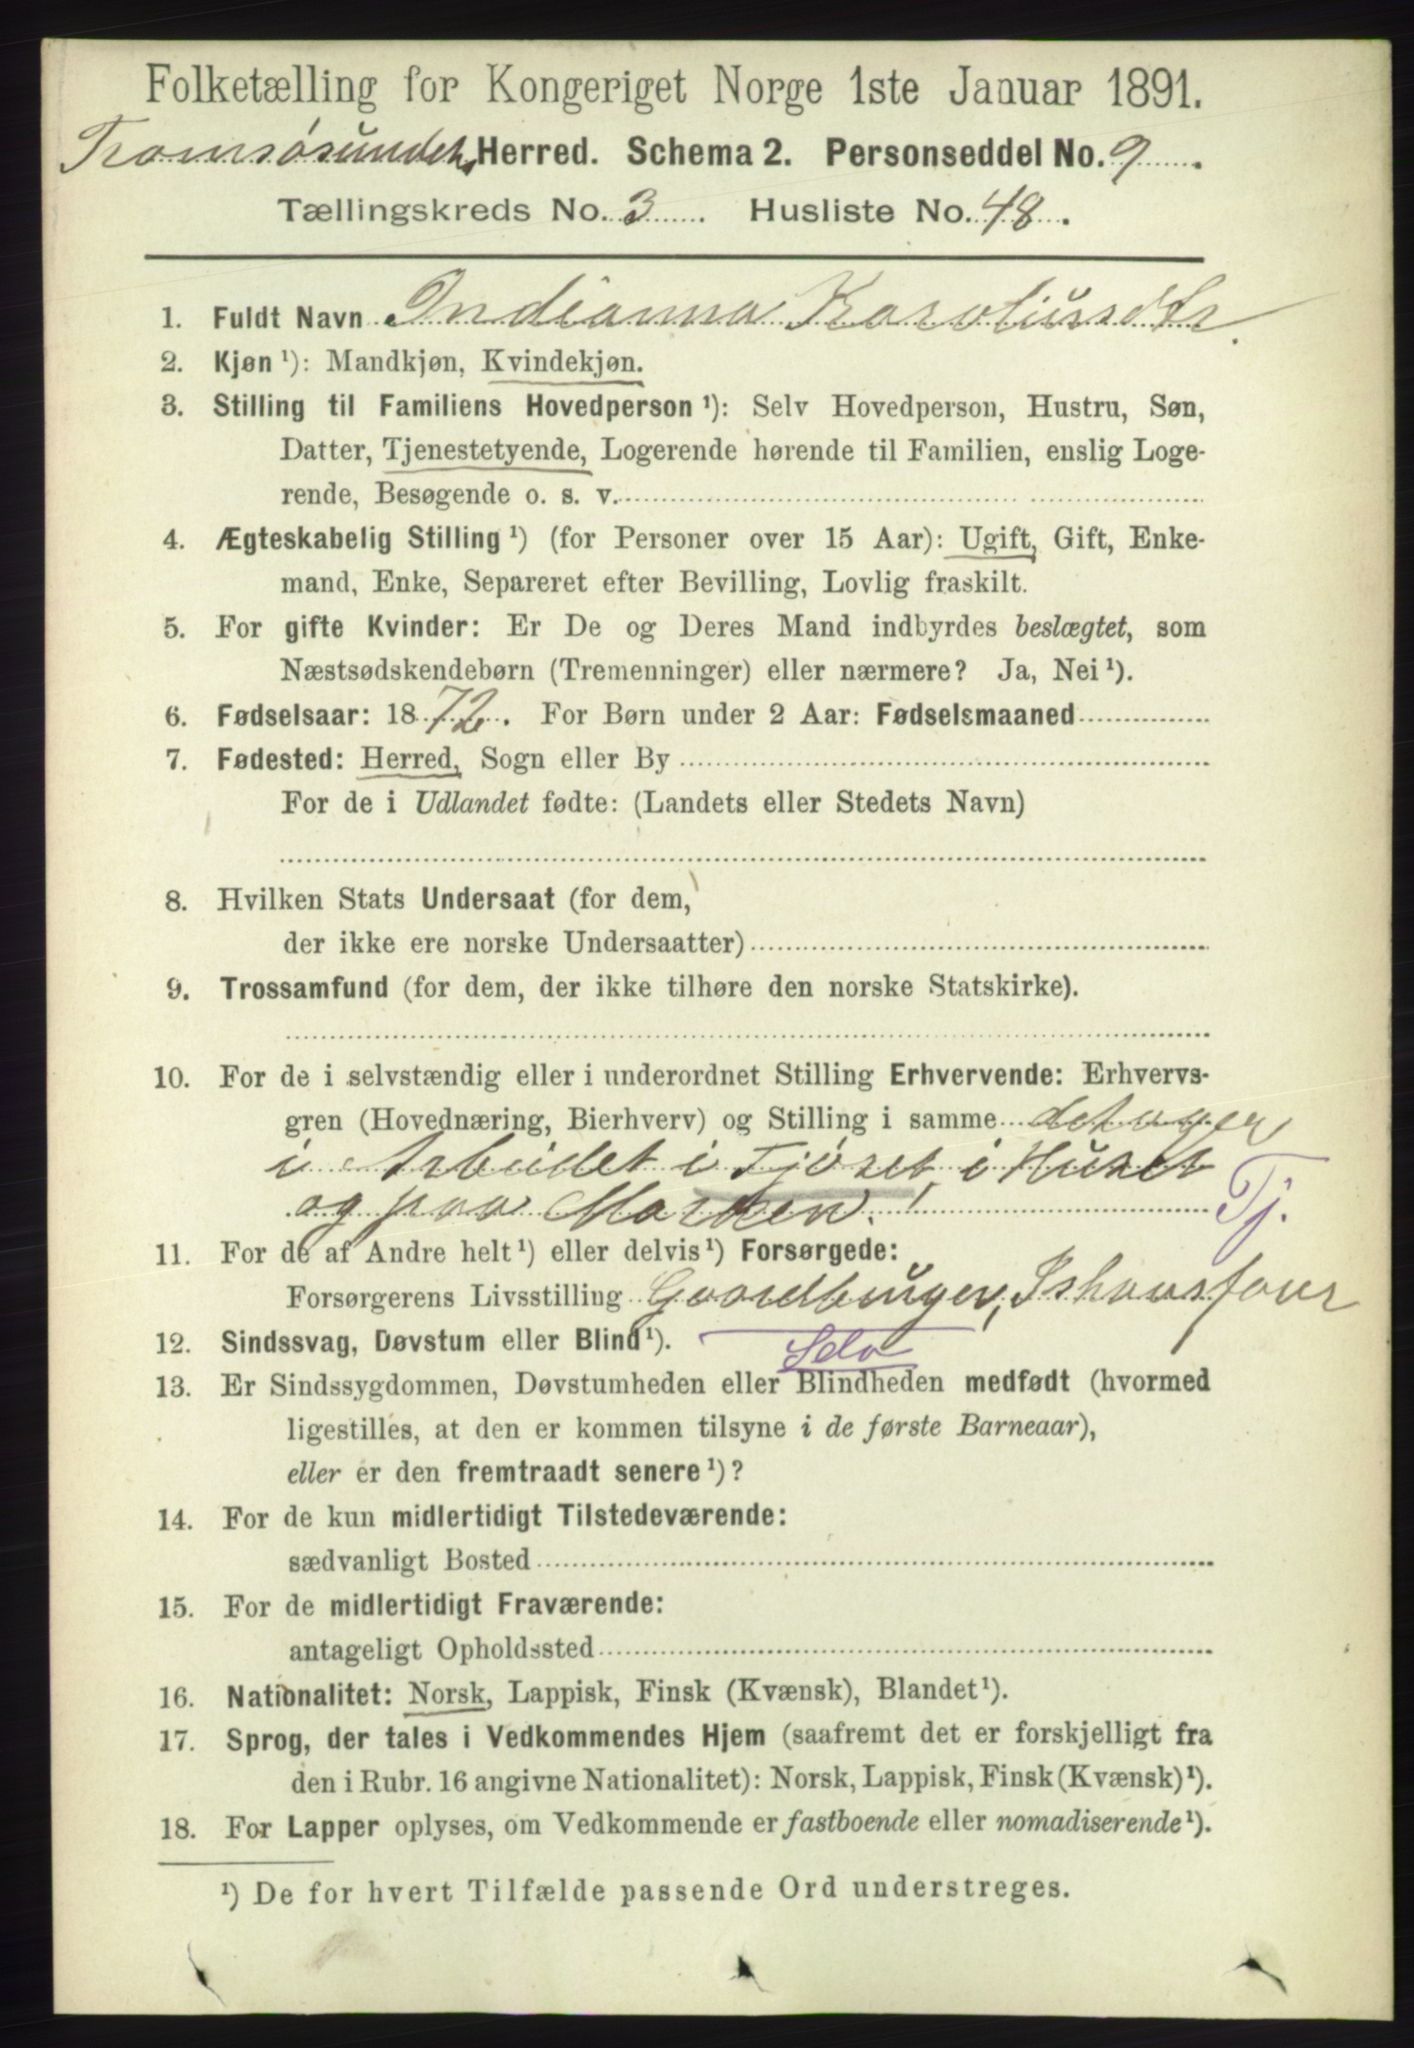 Folketælling for Kongeriget Norge 1ste Januar 1891.
Tromsøsundets Herred. Schema 2. Personseddel No. 9.
Tællingskreds No. 3. Husliste No. 48.
1. Fuldt Navn Indianna Karoliusdtr.
2. Kjøn ¹): Mandkjøn, Kvindekjøn.
3. Stilling til Familiens Hovedperson ¹): Selv Hovedperson, Hustru, Søn,
Datter, Tjenestetyende, Logerende hørende til Familien, enslig Loge-
rende, Besøgende o. s. v.
4. Ægteskabelig Stilling ¹) (for Personer over 15 Aar): Ugift, Gift, Enke-
mand, Enke, Separeret efter Bevilling, Lovlig fraskilt.
5. For gifte Kvinder: Er De og Deres Mand indbyrdes beslægtet, som
Næstsødskendebørn (Tremenninger) eller nærmere? Ja, Nei ¹).
6. Fødselsaar: 1872. For Børn under 2 Aar: Fødselsmaaned
7. Fødested: Herred, Sogn eller By
For de i Udlandet fødte: (Landets eller Stedets Navn)
8. Hvilken Stats Undersaat (for dem,
der ikke ere norske Undersaatter)
9. Trossamfund (for dem, der ikke tilhøre den norske Statskirke).
10. For de i selvstændig eller i underordnet Stilling Erhvervende: Erhvervs-
gren (Hovednæring, Bierhverv) og Stilling i samme detager
i Arbeidet i Fjøset, i Huset
og paa Marken. Tj.
11. For de af Andre helt ¹) eller delvis ¹) Forsørgede:
Forsørgerens Livsstilling Gaardbruger, Ishavsfarer
12. Sindssvag, Døvstum eller Blind ¹). Selv
13. Er Sindssygdommen, Døvstumheden eller Blindheden medfødt (hvormed
ligestilles, at den er kommen tilsyne i de første Barneaar),
eller er den fremtraadt senere ¹)?
14. For de kun midlertidigt Tilstedeværende:
sædvanligt Bosted
15. For de midlertidigt Fraværende:
antageligt Opholdssted
16. Nationalitet: Norsk, Lappisk, Finsk (Kvænsk), Blandet ¹).
17. Sprog, der tales i Vedkommendes Hjem (saafremt det er forskjelligt fra
den i Rubr. 16 angivne Nationalitet): Norsk, Lappisk, Finsk (Kvænsk) ¹).
18. For Lapper oplyses, om Vedkommende er fastboende eller nomadiserende ¹).
¹) De for hvert Tilfælde passende Ord understreges.